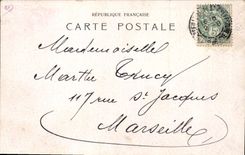 RÉPUBLIQUE FRANÇAISE
CARTE POSTALE
Mademoiselle
Marthe
117 rue St Jacques
Marseille